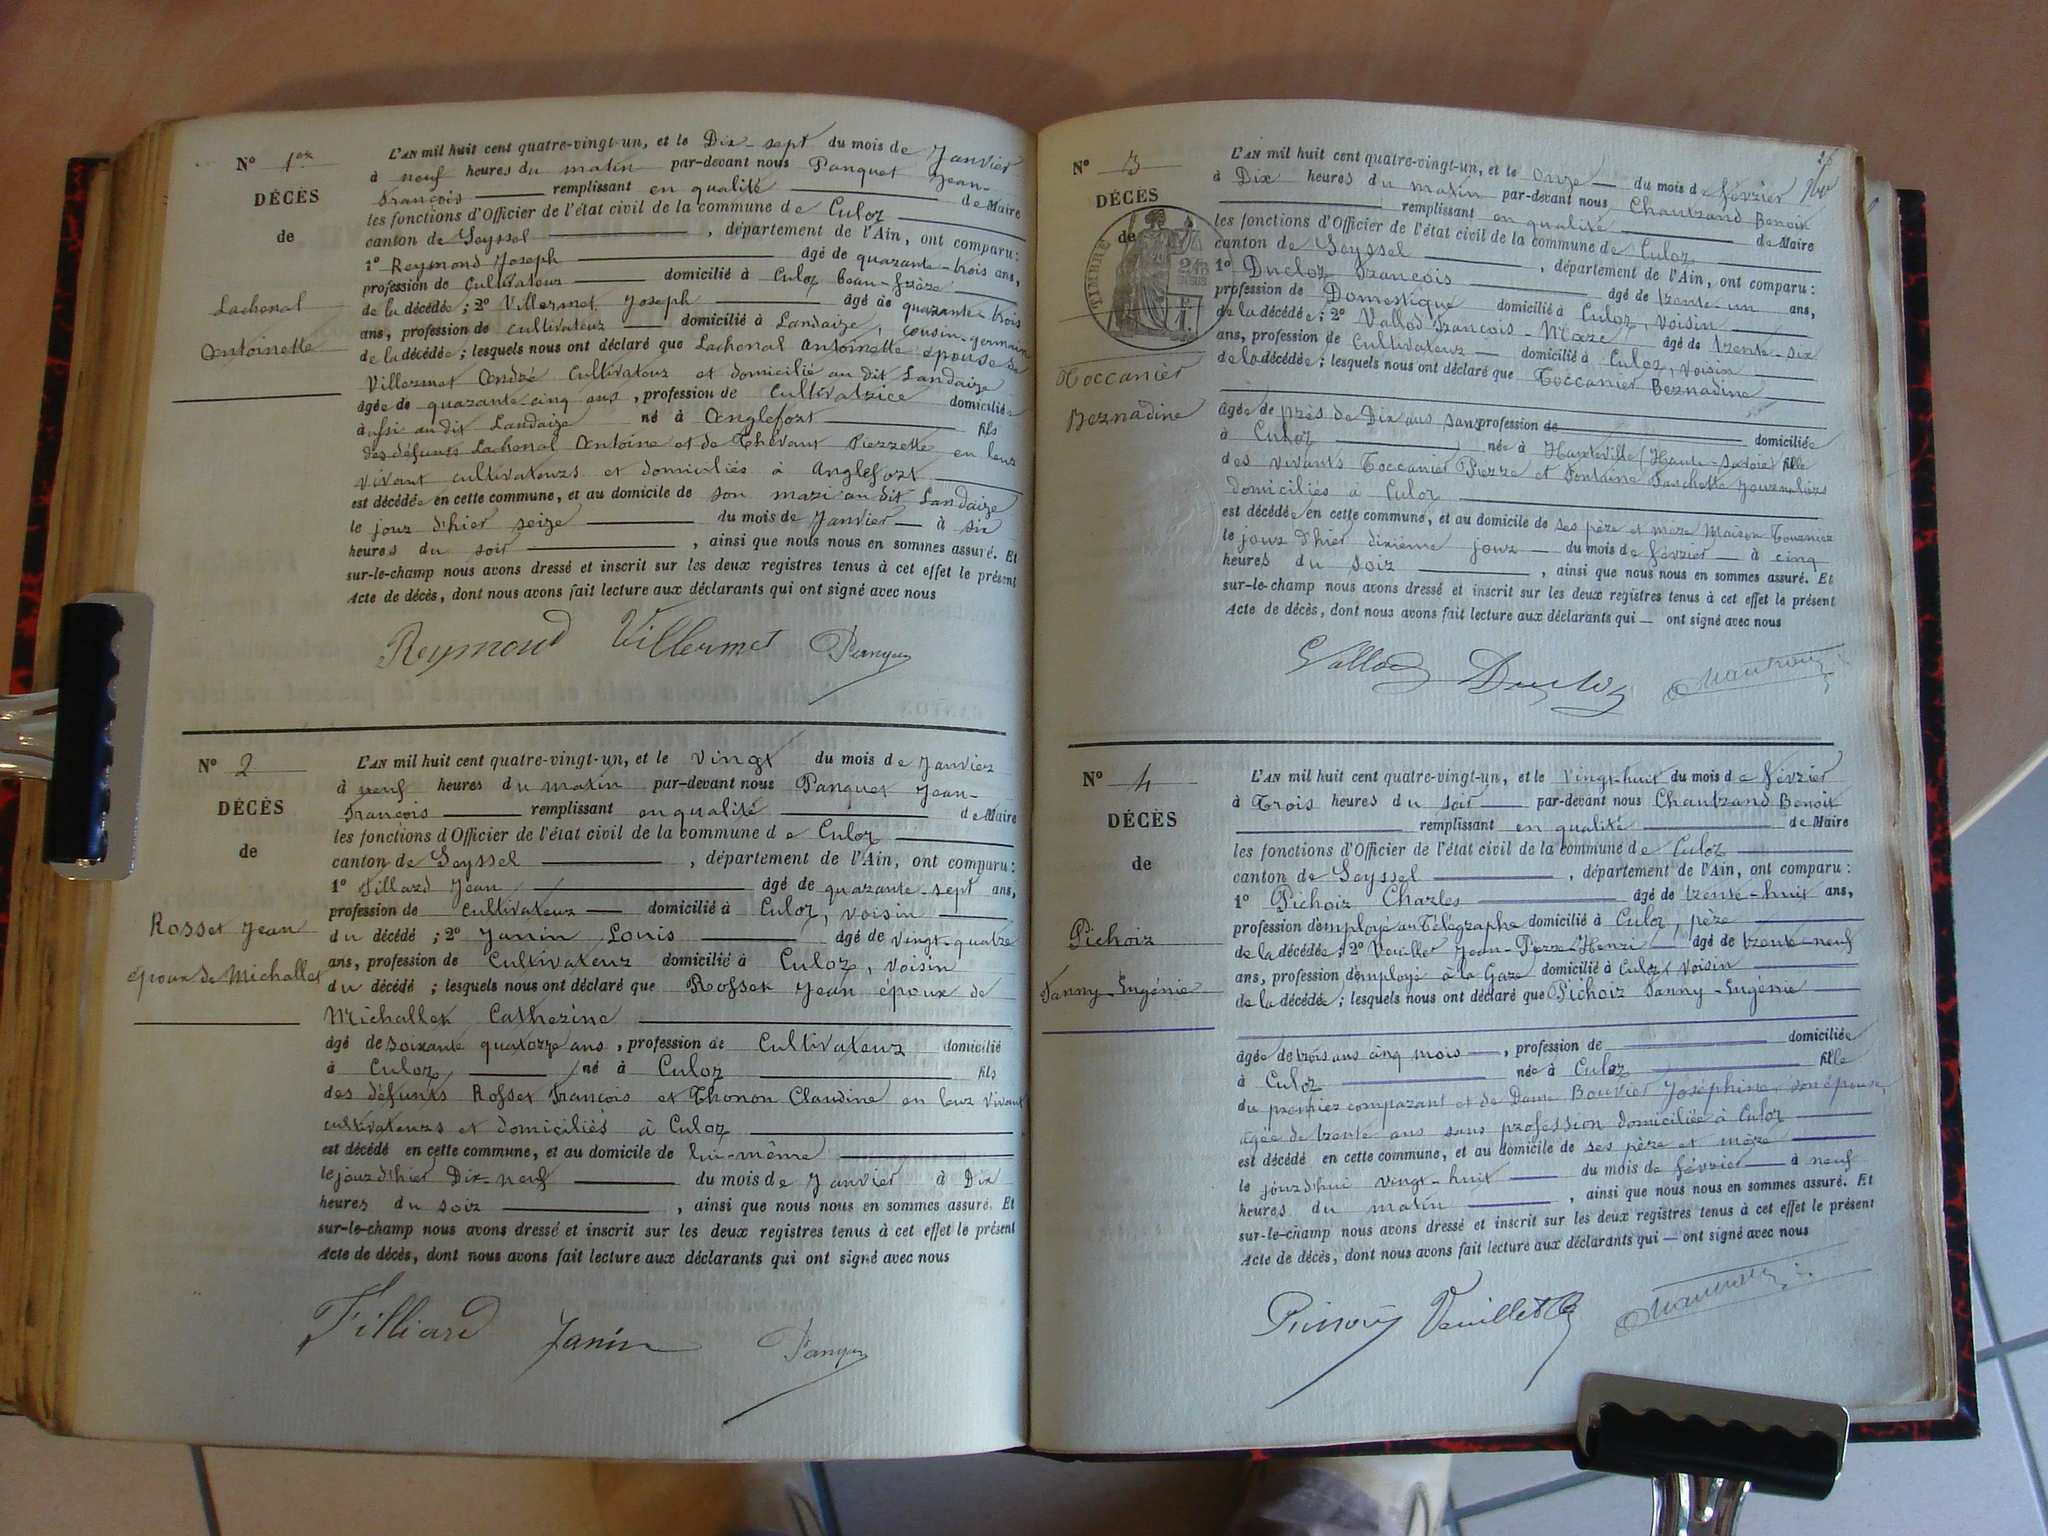 N° 1er
DÉCÈS
de
Lachenal
Antoinette
L'AN mil huit cent quatre-vingt-un, et le Dix-sept du mois de Janvier
à neuf heures du matin par-devant nous Panquet Jean-
François remplissant en qualité de Maire
les fonctions d'Officier de l'état civil de la commune de Culoz
canton de Seyssel, département de l'Ain, ont comparu:
1° Reymond Joseph âgé de quarante-trois ans,
profession de Cultivateur domicilié à Culoz beau-frère
de la décédée; 2° Villermet Joseph âgé de quarante-trois
ans, profession de cultivateur domicilié à Landaize, cousin-germain
de la décédée; lesquels nous ont déclaré que Lachenal Antoinette épouse de
Villermet André Cultivateur et domicilié au dit Landaize
âgée de quarante cinq ans, profession de Cultivatrice domiciliée
à ussi au dit Landaize né à Anglefort fils
des défunts Lachenal Antoine et de Thévant Pierrette en leur
vivant cultivateurs et domiciliés à Anglefort
est décédée en cette commune, et au domicile de son mari au dit Landaize
le jour d'hier seize du mois de Janvier à six
heures du soir, ainsi que nous nous en sommes assuré. Et
sur-le-champ nous avons dressé et inscrit sur les deux registres tenus à cet effet le présent
Acte de décès, dont nous avons fait lecture aux déclarants qui ont signé avec nous
Reymond Villermet Panquet
N° 2
DÉCÈS
de
Rosset Jean
époux de Michallet
L'AN mil huit cent quatre-vingt-un, et le vingt du mois de Janvier
à neuf heures du matin par-devant nous Panquet Jean-
François remplissant en qualité de Maire
les fonctions d'Officier de l'état civil de la commune de Culoz
canton de Seyssel, département de l'Ain, ont comparu:
1° Fillard Jean âgé de quarante-sept ans,
profession de Cultivateur domicilié à Culoz, voisin
du décédé; 2° Janin Louis âgé de vingt-quatre
ans, profession de Cultivateur domicilié à Culoz, voisin
du décédé; lesquels nous ont déclaré que Rosset Jean époux de
Michallet Catherine
âgé de soixante quatorze ans, profession de Cultivateur domicilié
à Culoz, né à Culoz fils
des défunts Rosset François et Thonon Claudine en leur vivant
cultivateurs et domiciliés à Culoz
est décédé en cette commune, et au domicile de lui-même
le jour d'hier Dix-neuf du mois de Janvier à Dix
heures du soir, ainsi que nous nous en sommes assuré. Et
sur-le-champ nous avons dressé et inscrit sur les deux registres tenus à cet effet le présent
Acte de décès, dont nous avons fait lecture aux déclarants qui ont signé avec nous
Filliard Janin Panquet
N° 3
DÉCÈS
de
TIMBRE
Toccanier
Bernadine
L'AN mil huit cent quatre-vingt-un, et le Onze du mois de février
à Dix heures du matin par-devant nous Chautrand Benoit
remplissant en qualité de Maire
les fonctions d'Officier de l'état civil de la commune de Culoz
canton de Seyssel, département de l'Ain, ont comparu:
1° Ducloz François âgé de trente-un ans,
profession de Domestique domicilié à Culoz, voisin
de la décédée; 2° Vallod François-Marie âgé de trente-six
ans, profession de Cultivateur domicilié à Culoz, voisin
de la décédée; lesquels nous ont déclaré que Toccanier Bernadine
âgée de près de Dix ans sans profession de domiciliée
à Culoz née à Hauteville (Haute-Savoie) fille
des vivants Toccanier Pierre et Fontaine Faschette Journaliers
domiciliés à Culoz
est décédée en cette commune, et au domicile de ses père et mère Maison Tournier
le jour d'hier dixième jour du mois de février à cinq
heures du soir, ainsi que nous nous en sommes assuré. Et
sur-le-champ nous avons dressé et inscrit sur les deux registres tenus à cet effet le présent
Acte de décès, dont nous avons fait lecture aux déclarants qui — ont signé avec nous
Vallod Ducloz Chautrand
N° 4
DÉCÈS
de
Pichoir
Fanny-Eugénie
L'AN mil huit cent quatre-vingt-un, et le vingt-huit du mois de février
à Trois heures du soir par-devant nous Chautrand Benoit
remplissant en qualité de Maire
les fonctions d'Officier de l'état civil de la commune de Culoz
canton de Seyssel, département de l'Ain, ont comparu:
1° Pichoir Charles âgé de trente-huit ans,
profession d'employé au Télégraphe domicilié à Culoz, père
de la décédée; 2° Veuillet Jean-Pierre-Henri âgé de trente-neuf
ans, profession d'employé à la Gare domicilié à Culoz, voisin
de la décédée; lesquels nous ont déclaré que Pichoir Fanny-Eugénie
âgée de trois ans cinq mois, profession de domiciliée
à Culoz née à Culoz fille
du premier comparant et de Dame Bouvier Joséphine son épouse,
âgée de trente ans sans profession domiciliée à Culoz
est décédé en cette commune, et au domicile de ses père et mère
le jour d'hui vingt-huit du mois de février à neuf
heures du matin, ainsi que nous nous en sommes assuré. Et
sur-le-champ nous avons dressé et inscrit sur les deux registres tenus à cet effet le présent
Acte de décès, dont nous avons fait lecture aux déclarants qui — ont signé avec nous
Veuillet Chautrand